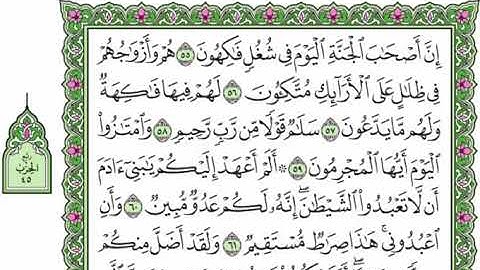 إِنَّ أَصْحَٰبَ ٱلْجَنَّةِ ٱلْيَوْمَ فِى شُغُلٍ فَٰكِهُونَ ٥٥ هُمْ وَأَزْوَٰجُهُمْ
فِى ظِلَٰلٍ عَلَى ٱلْأَرَآئِكِ مُتَّكِـُٔونَ ٥٦ لَهُمْ فِيهَا فَٰكِهَةٌ
وَلَهُم مَّا يَدَّعُونَ ٥٧ سَلَٰمٌ قَوْلًا مِّن رَّبٍّ رَّحِيمٍ ٥٨ وَٱمْتَٰزُوا۟
ٱلْيَوْمَ أَيُّهَا ٱلْمُجْرِمُونَ ٥٩ ۞ أَلَمْ أَعْهَدْ إِلَيْكُمْ يَٰبَنِىٓ ءَادَمَ
أَن لَّا تَعْبُدُوا۟ ٱلشَّيْطَٰنَ ۖ إِنَّهُۥ لَكُمْ عَدُوٌّ مُّبِينٌ ٦٠ وَأَنِ
ٱعْبُدُونِى ۚ هَٰذَا صِرَٰطٌ مُّسْتَقِيمٌ ٦١ وَلَقَدْ أَضَلَّ مِنكُمْ
ربع
الحزب
٤٥